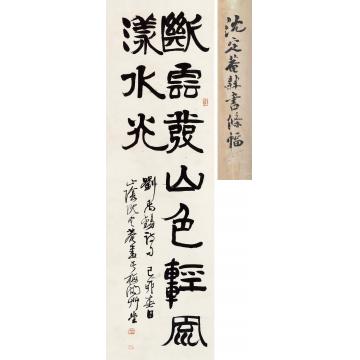 斷雲發山色輕風
漾水光
劉禹錫詩句 己卯春日
山陰沈定菴書于梅湖草堂
沈定菴隸書條幅